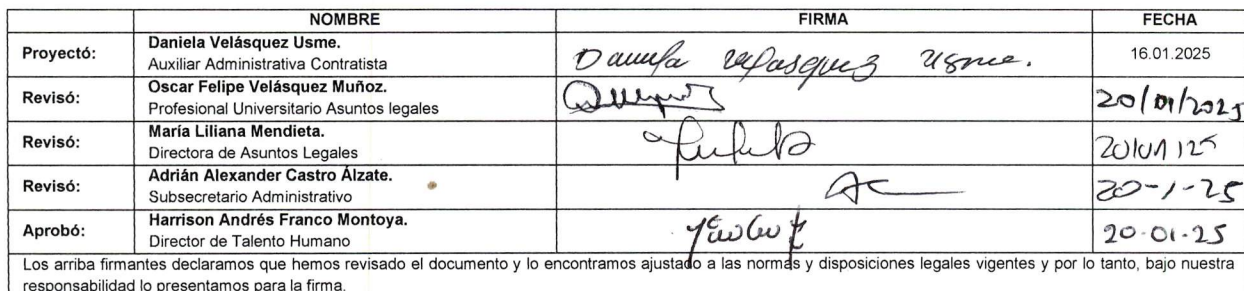 NOMBRE FIRMA FECHA
Proyectó: Daniela Velásquez Usme.
Auxiliar Administrativa Contratista
Daniela Velasquez Usme. 16.01.2025
Revisó: Oscar Felipe Velásquez Muñoz.
Profesional Universitario Asuntos legales
20/01/2025
Revisó: María Liliana Mendieta.
Directora de Asuntos Legales
20/01/25
Revisó: Adrián Alexander Castro Álzate.
Subsecretario Administrativo
AC 20-1-25
Aprobó: Harrison Andrés Franco Montoya.
Director de Talento Humano
20-01-25
Los arriba firmantes declaramos que hemos revisado el documento y lo encontramos ajustado a las normas y disposiciones legales vigentes y por lo tanto, bajo nuestra
responsabilidad lo presentamos para la firma.